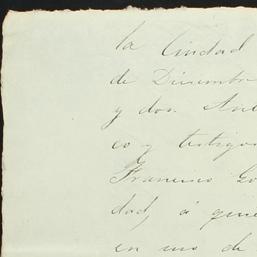 la Ciudad
de Diciembre
y don
co y testigos
Francisco
dad, á quie
en uso de